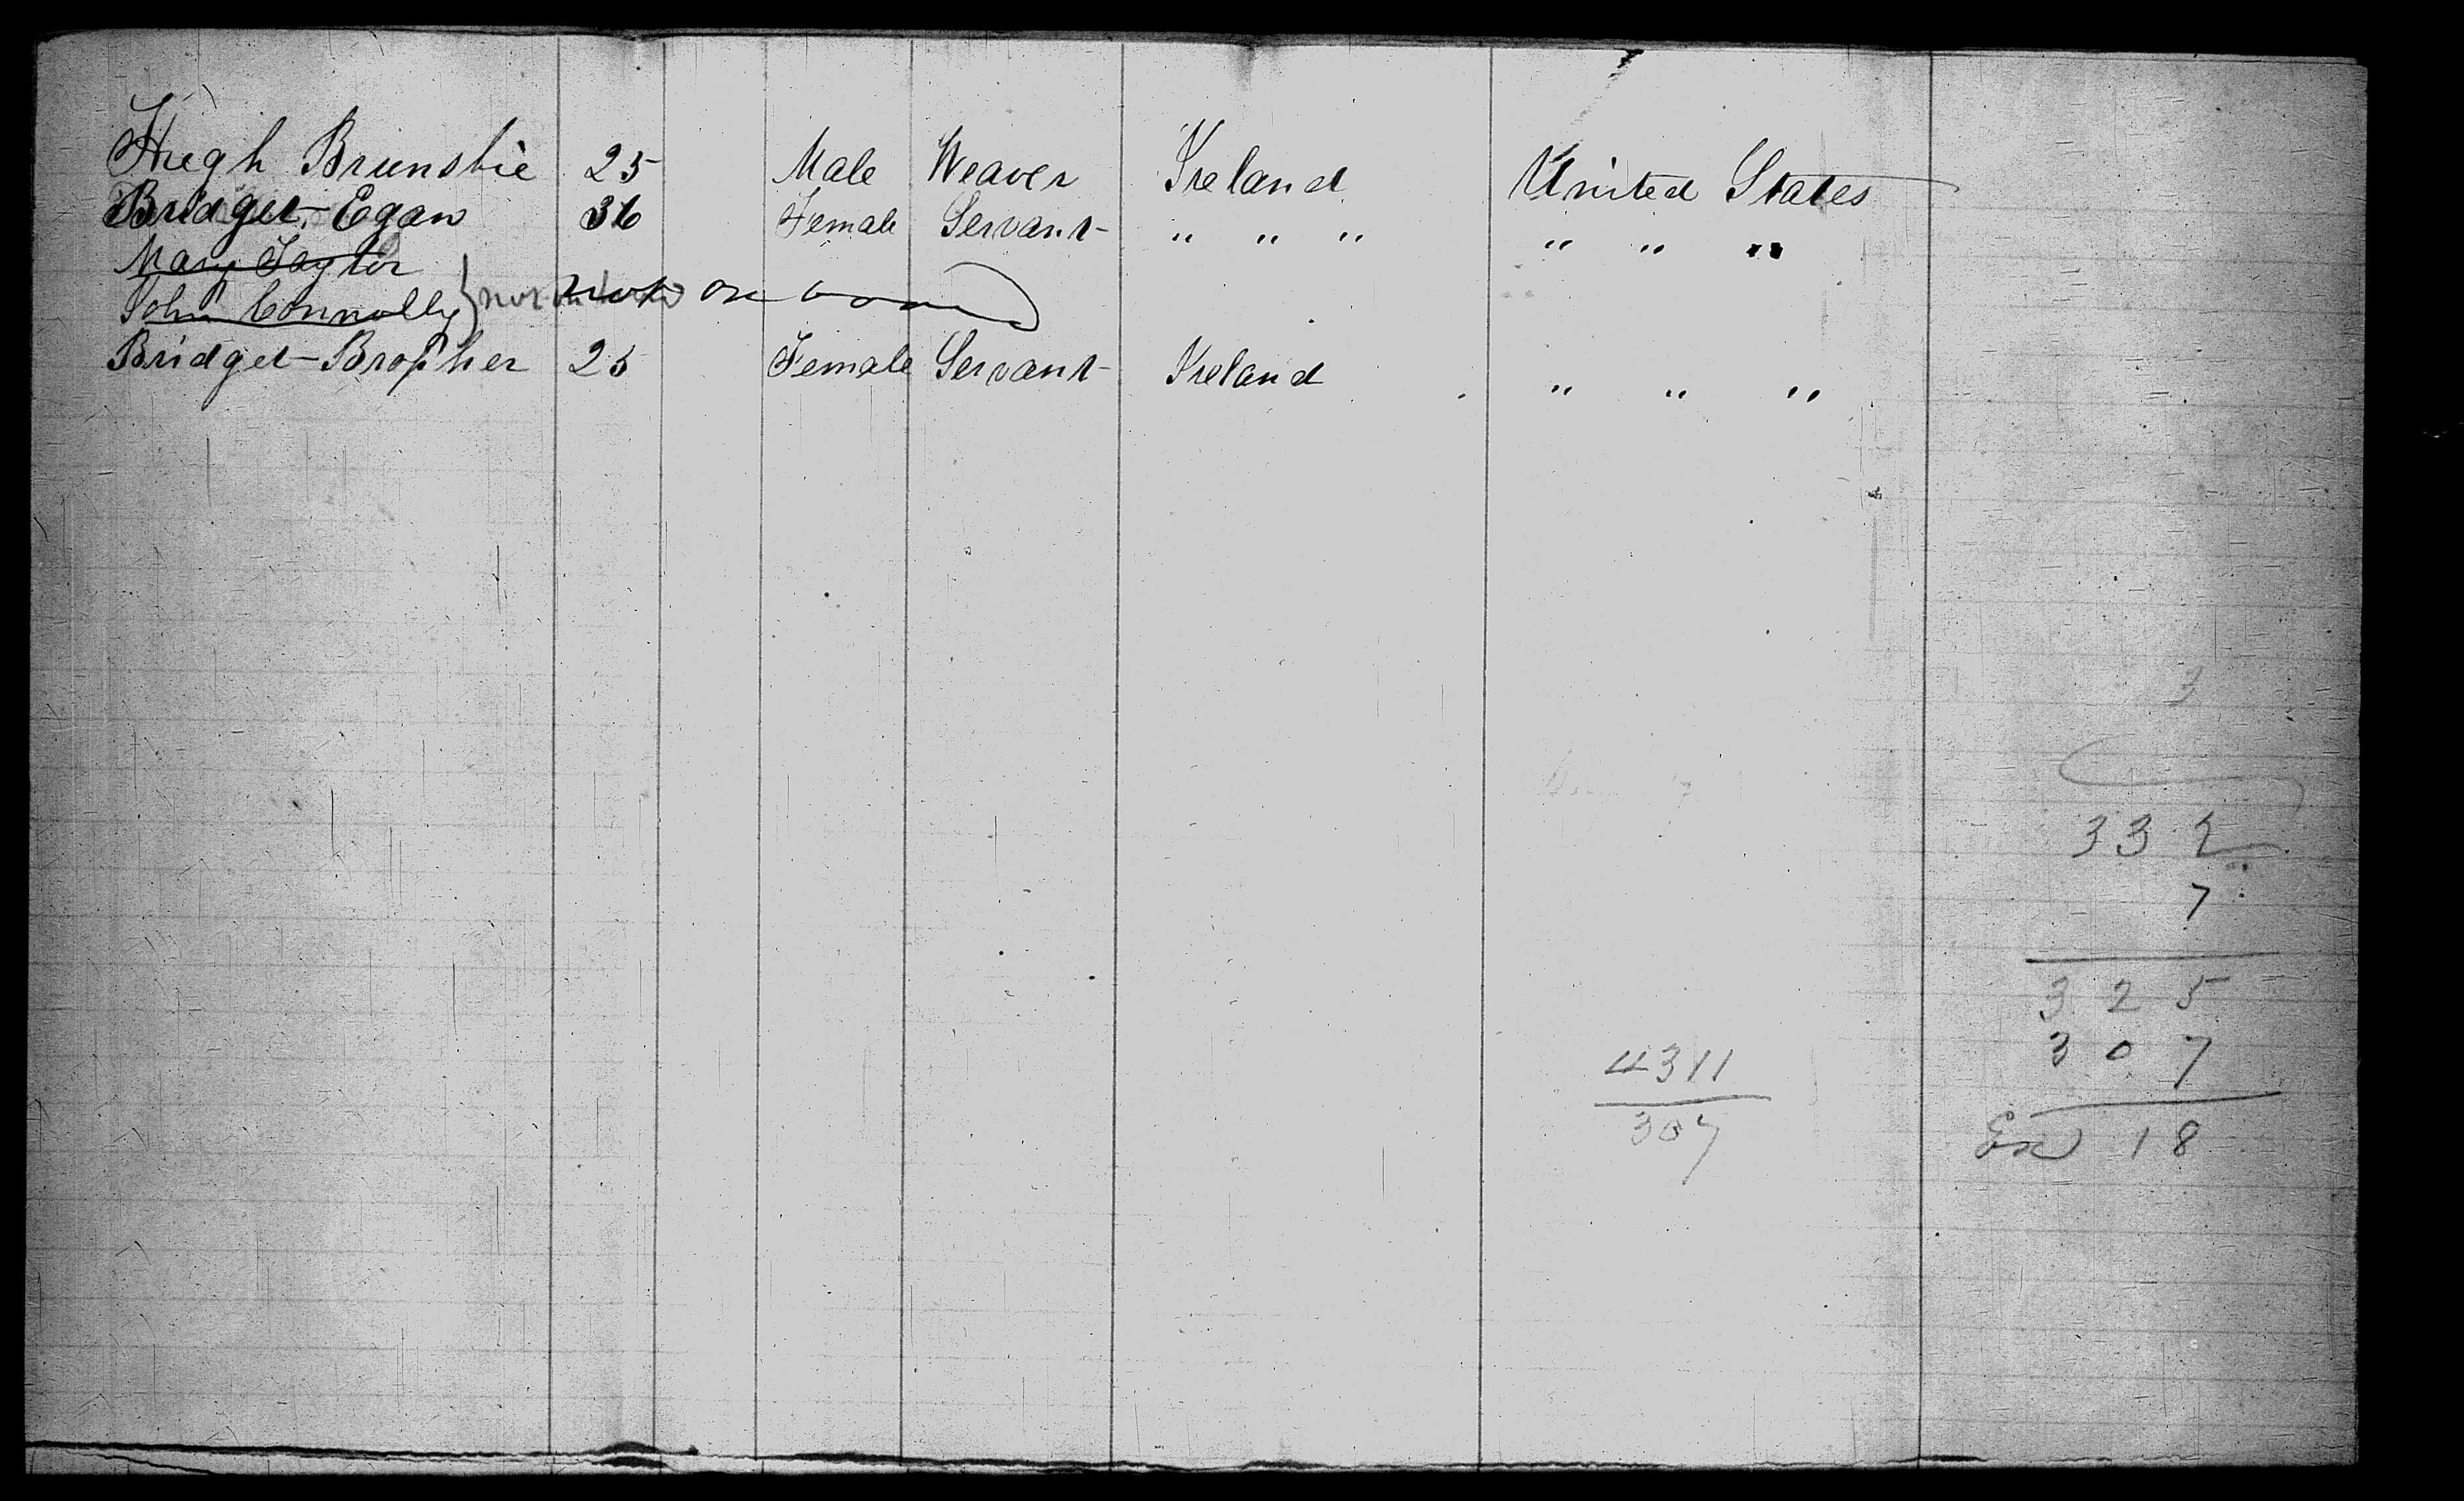 Hugh Brunskie 25 Male Weaver Ireland United States
Bridget Egan 36 Female Servant " " " " " "
Mary Taylor
John Connolly } not on board
Bridget Bropher 25 Female Servant Ireland " " "
3
332
7
325
4311
307
307
Ex 18